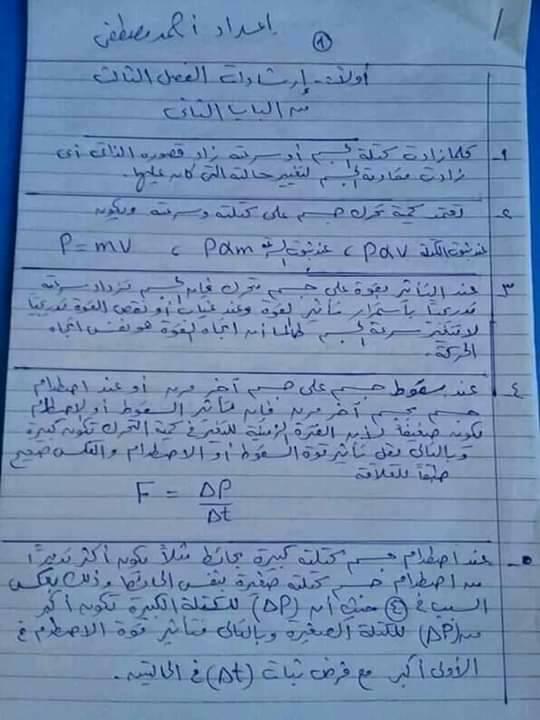 إعداد أحمد مصطفى
١
أولاً:- إرشادات الفصل الثالث
من الباب الثانى
١- كلما زادت كتلة الجسم أو سرعته زاد قصوره الذاتى أى
زادت مقاومة الجسم لتغيير حالته التى كان عليها.
٢- تعتمد كمية تحرك جسم على كتلته وسرعته ويكون
عند ثبوت الكتلة P α v ، عند ثبوت السرعة P α m ، P = mv
٣- عند التأثير بقوة على جسم متحرك فإن الجسم تزداد سرعته
تدريجياً باستمرار تأثير القوة وعند غياب أو نقص القوة تدريجياً
لا تتغير سرعة الجسم طالما أن اتجاه القوة هو نفس اتجاه
الحركة.
٤- عند سقوط جسم على جسم آخر مرن أو عند اصطدام
جسم بجسم آخر مرن فإن تأثير السقوط أو الاصطدام
تكون ضعيفة لأن الفترة الزمنية للتغير فى كمية التحرك تكون كبيرة
وبالتالى يقل تأثير قوة السقوط أو الاصطدام والعكس صحيح
طبقاً للعلاقة
F = ΔP / Δt
٥- عند اصطدام جسم كتلته كبيرة بحائط مثلاً يكون أكثر تدميراً
من اصطدام جسم كتلته صغيرة بنفس الحائط وذلك بعكس
السبب فى ٤ حيث أن (ΔP) للكتلة الكبيرة تكون أكبر
من (ΔP) للكتلة الصغيرة وبالتالى فتأثير قوة الاصطدام فى
الأولى أكبر مع فرض ثبات (Δt) فى الحالتين.